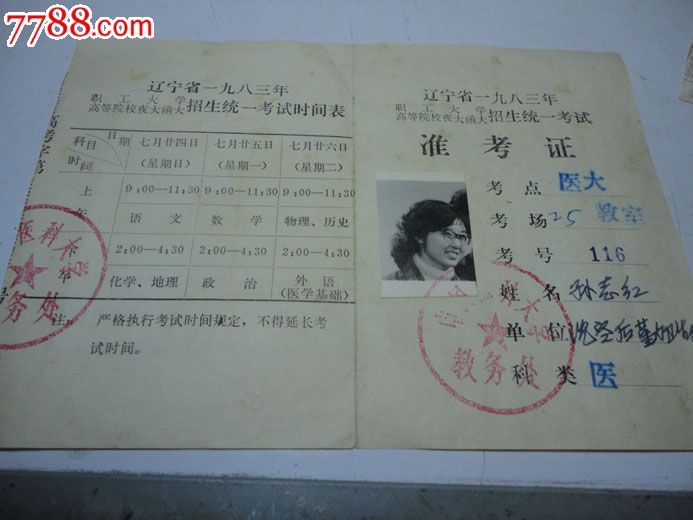 7788.com
辽宁省一九八三年
职工大学
高等院校夜大函大招生统一考试时间表
日期 科目 时间
七月廿四日 (星期日)
七月廿五日 (星期一)
七月廿六日 (星期二)
上午
9:00—11:30 9:00—11:30 9:00—11:30
语文 数学 物理、历史
2:00—4:30 2:00—4:30 2:00—4:30
化学、地理 政治 外语
(医学基础)
注: 严格执行考试时间规定,不得延长考
试时间。
医科大学
教务处
辽宁省一九八三年
职工大学
高等院校夜大函大招生统一考试
准考证
考点 医大
考场 25 教室
考号 116
姓名 孙志红
单位
科类 医
教务处